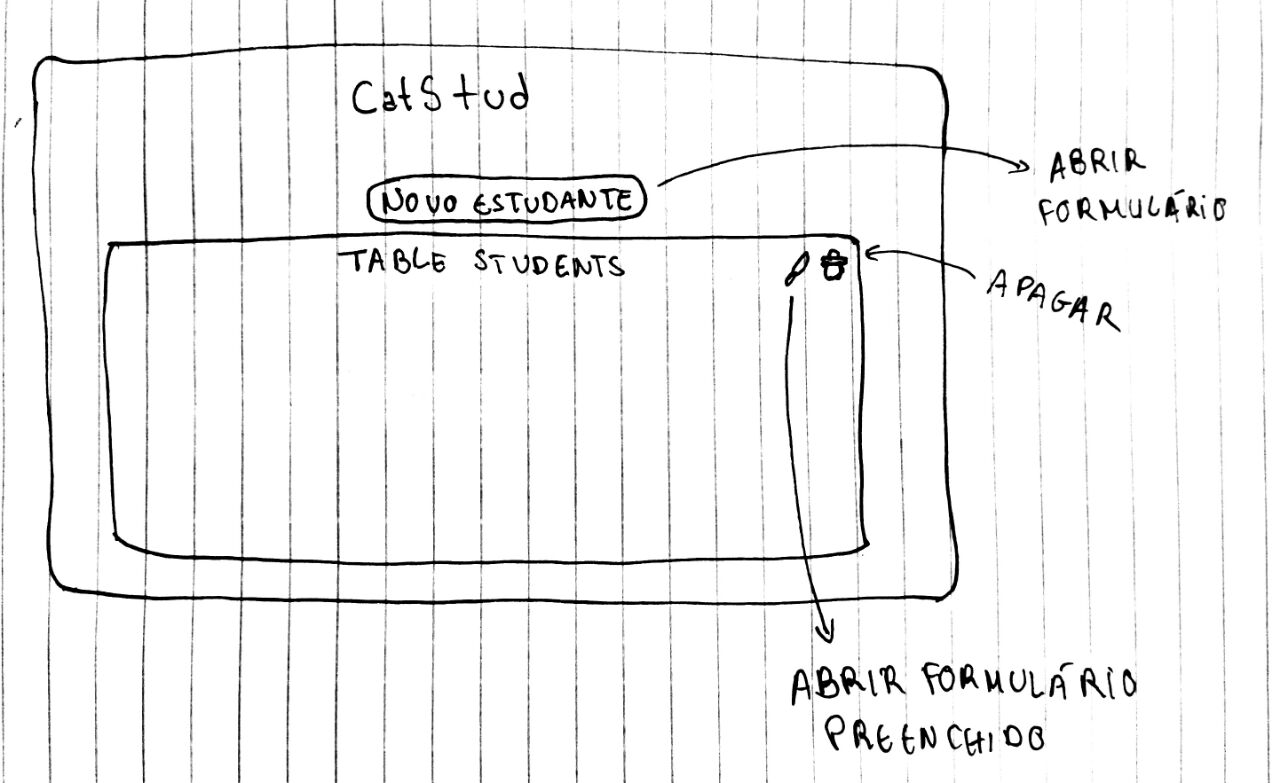 CatStud
NOVO ESTUDANTE
ABRIR
FORMULÁRIO
TABLE STUDENTS
APAGAR
ABRIR FORMULÁRIO
PREENCHIDO